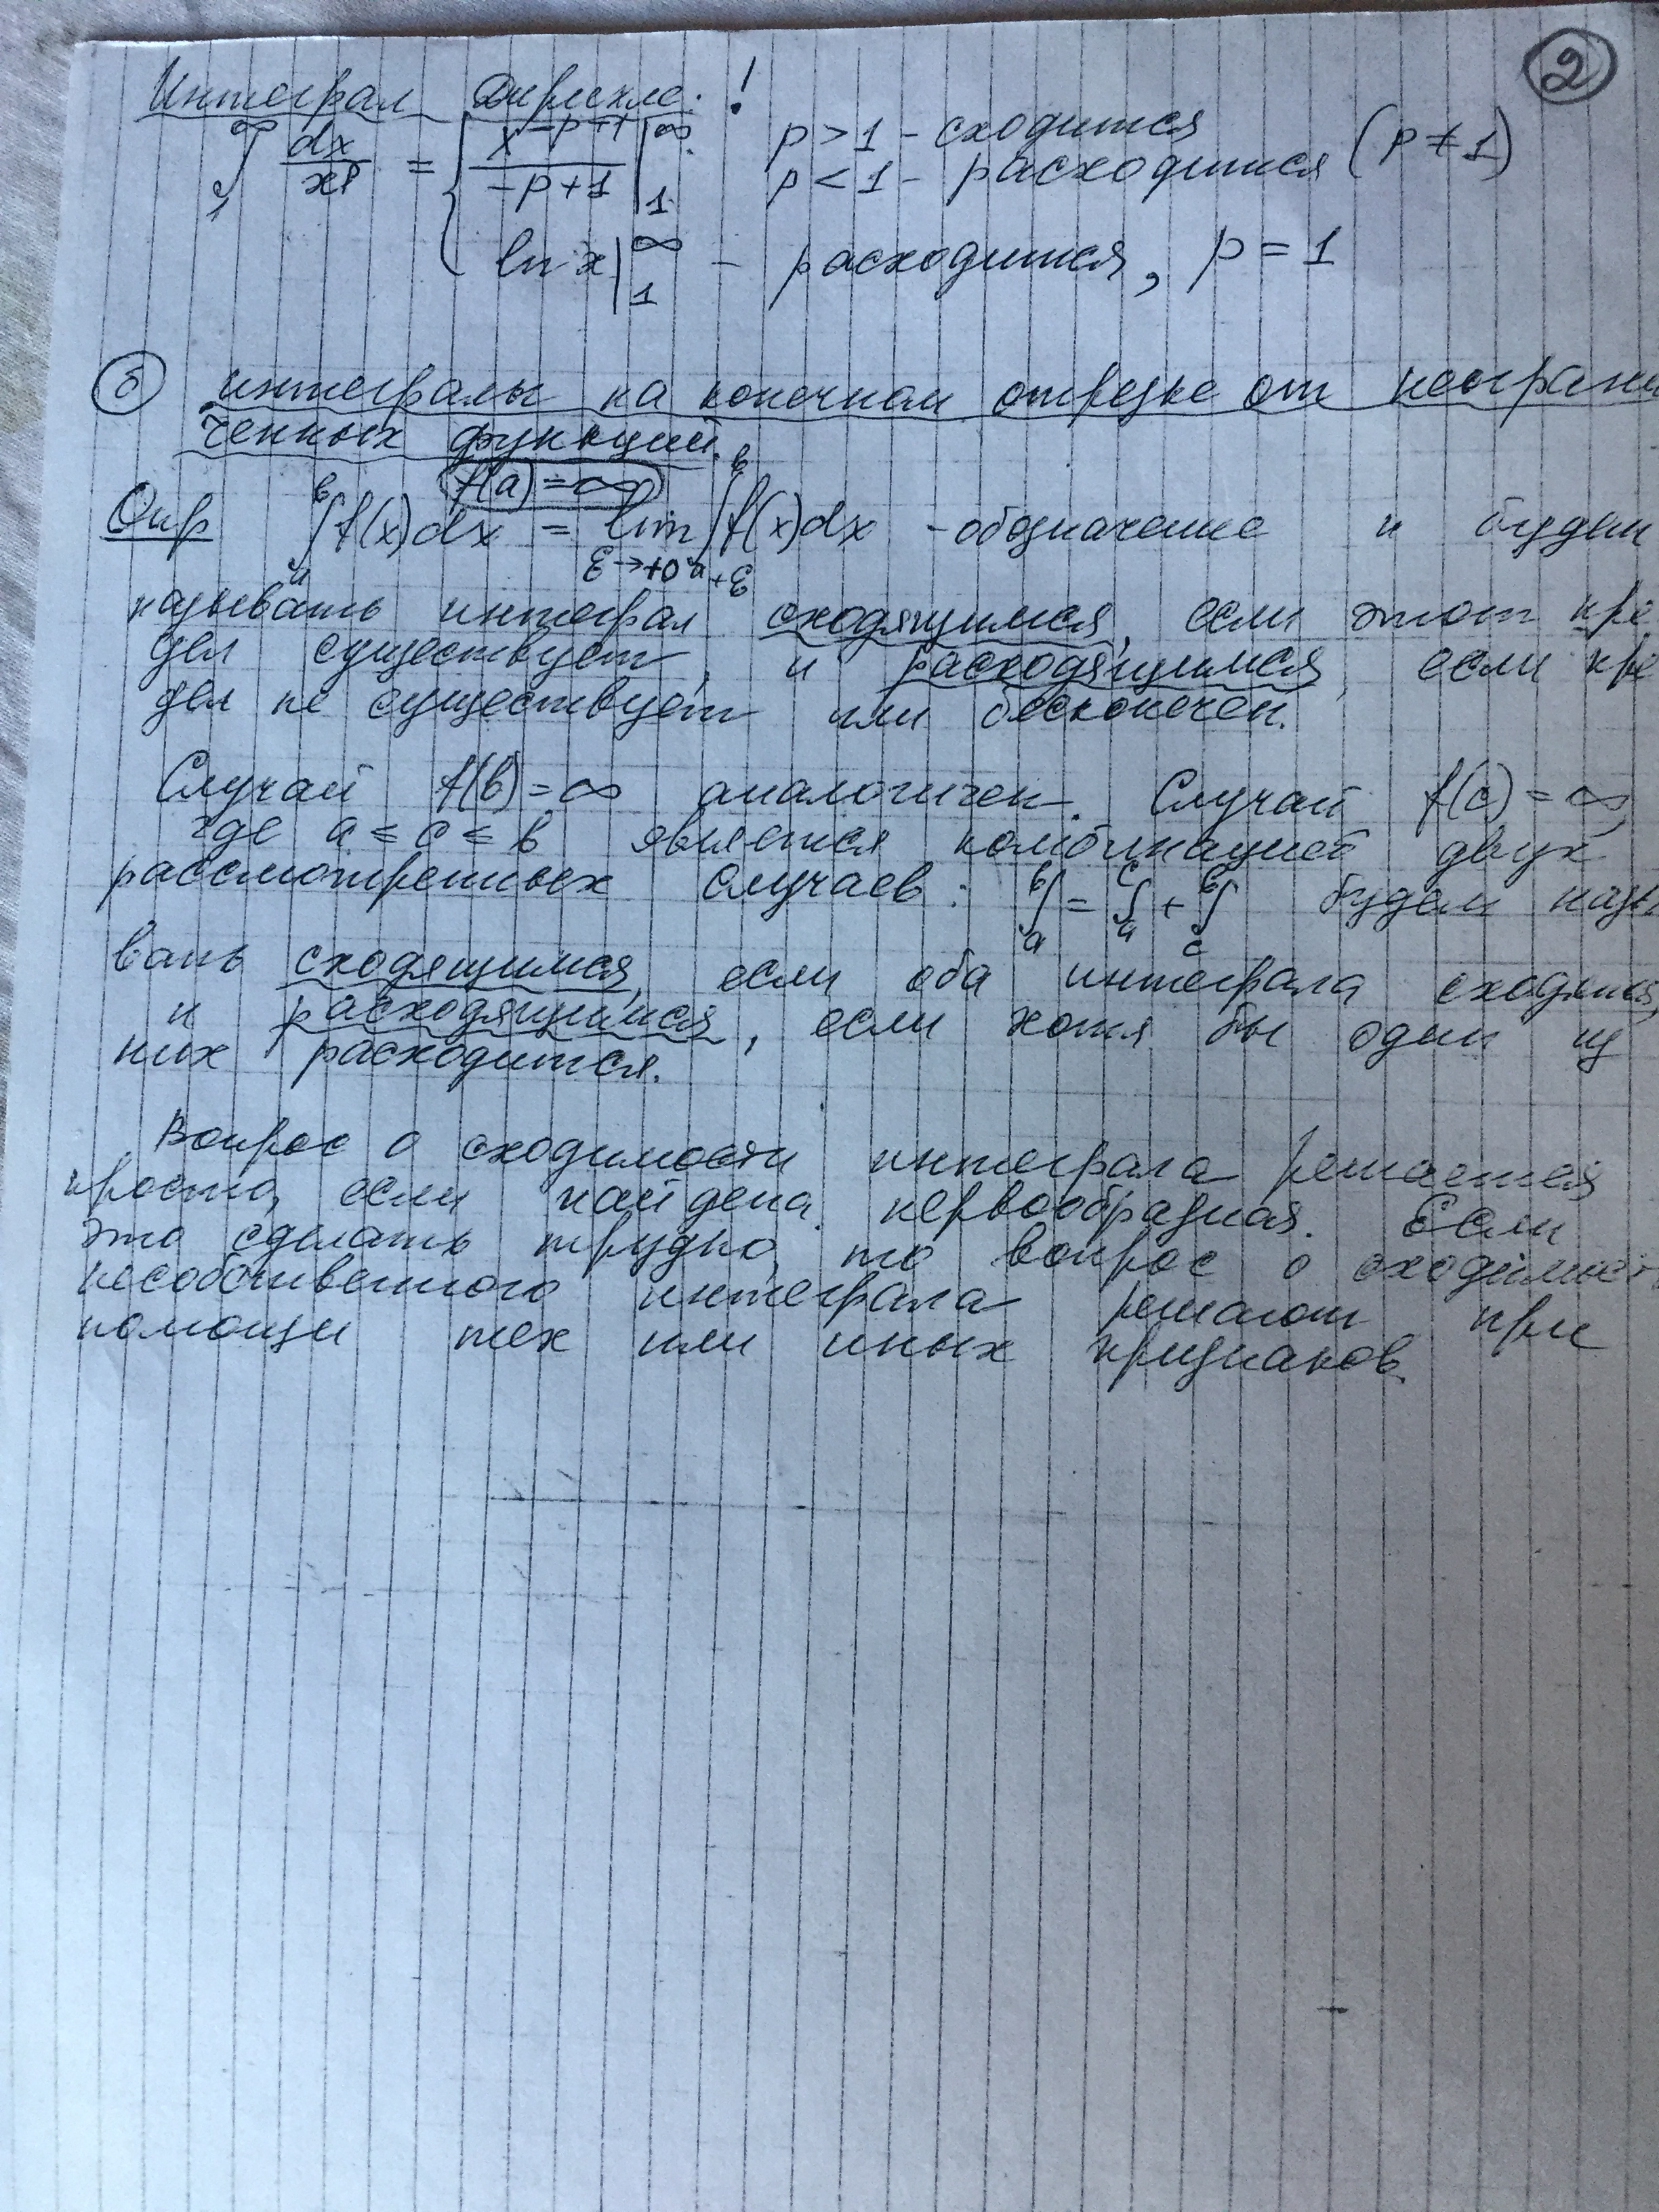 2
Интеграл Дирихле: !
∫₁^∞ dx/x^p = { x^(-p+1)/(-p+1) |₁^∞ p > 1 - сходится
p < 1 - расходится (p ≠ 1)
ln x |₁^∞ - расходится, p = 1
б) интегралы на конечном отрезке от неограни
ченных функций.
f(a) = ∞
Опр ∫ₐ^в f(x)dx = lim_(ε→+0) ∫_(a+ε)^в f(x)dx - обозначение и будем
называть интеграл сходящимся, если этот пре
дел существует, и расходящимся, если пре
дел не существует или бесконечен.
Случай f(в) = ∞ аналогичен. Случай f(c) = ∞,
где a ≤ c ≤ в является комбинацией двух
рассмотренных случаев: ∫ₐ^в = ∫ₐ^c + ∫_c^в будем назы
вать сходящимся, если оба интеграла сходятся,
и расходящимся, если хотя бы один из
них расходится.
Вопрос о сходимости интеграла решается
просто, если найдена первообразная. Если
это сделать трудно, то вопрос о сходимости
несобственного интеграла решают при
помощи тех или иных признаков.